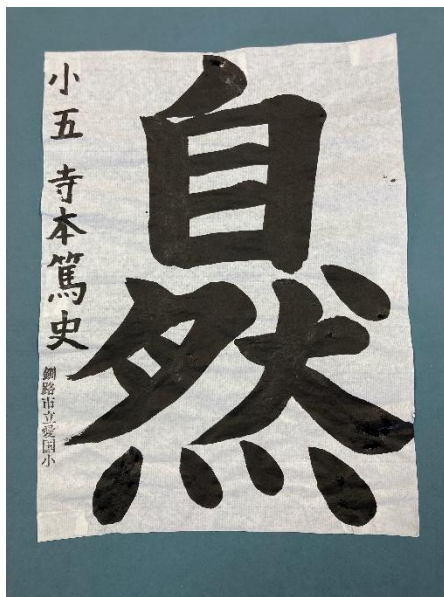 自然
小五 寺本篤史
釧路市立愛国小